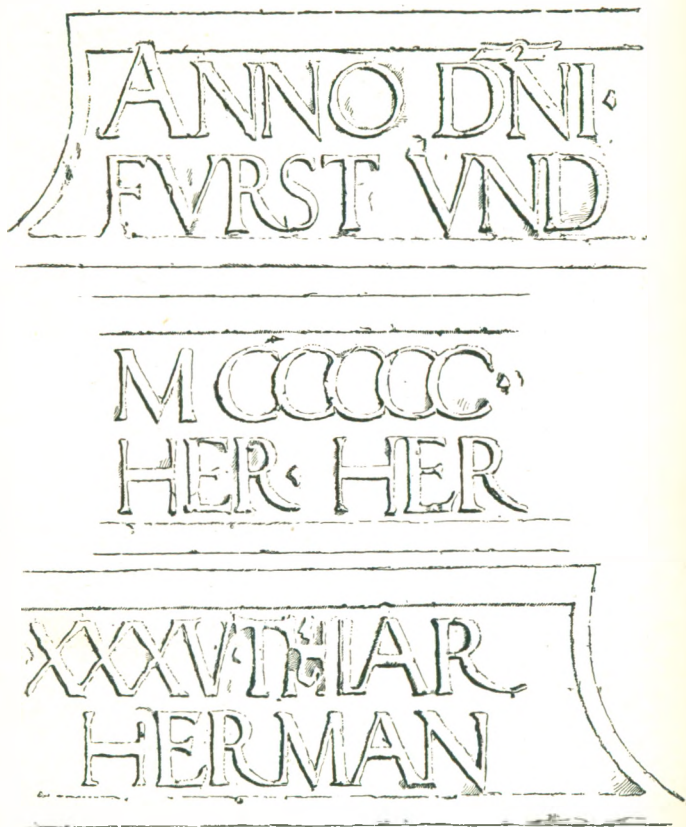 ANNO DÑI·
FVRST VND
M CCCCC·
HER· HER
XXXV IAR
HERMAN